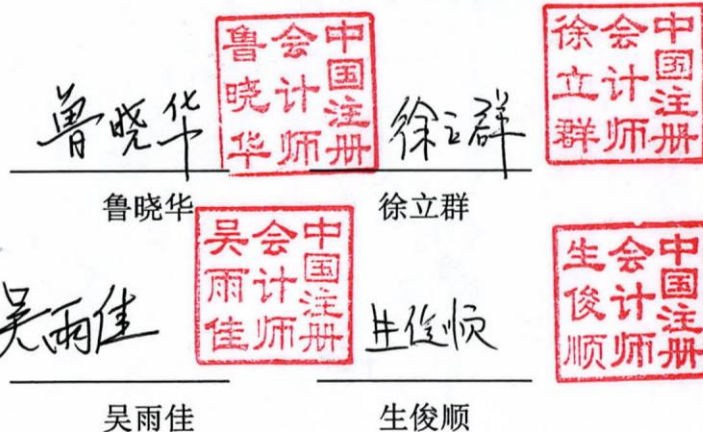 鲁晓华 中国注册会计师鲁晓华 徐立群 中国注册会计师徐立群
鲁晓华 徐立群
吴雨佳 中国注册会计师吴雨佳 生俊顺 中国注册会计师生俊顺
吴雨佳 生俊顺